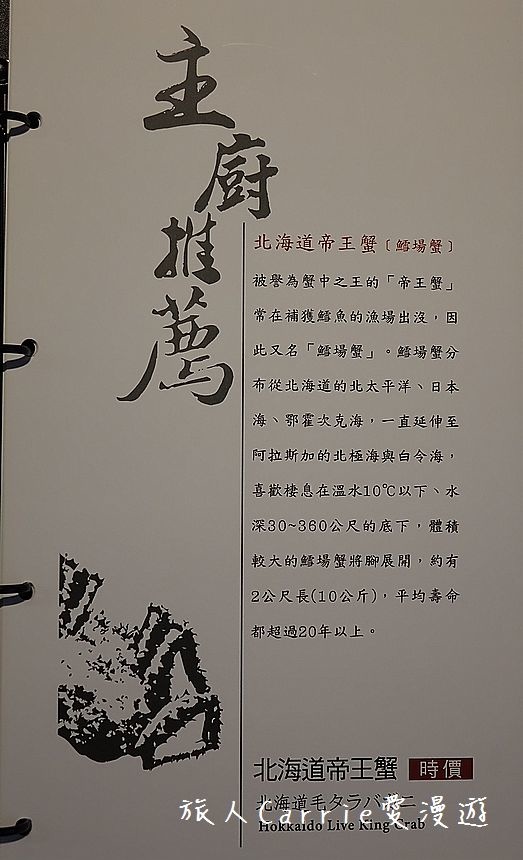 主廚推薦
北海道帝王蟹〔鱈場蟹〕
被譽為蟹中之王的「帝王蟹」
常在補獲鱈魚的漁場出沒，因
此又名「鱈場蟹」。鱈場蟹分
布從北海道的北太平洋、日本
海、鄂霍次克海，一直延伸至
阿拉斯加的北極海與白令海，
喜歡棲息在溫水10℃以下、水
深30~360公尺的底下，體積
較大的鱈場蟹將腳展開，約有
2公尺長(10公斤)，平均壽命
都超過20年以上。
北海道帝王蟹 時價
北海道毛タラバガニ
Hokkaido Live King Crab
旅人Carrie愛漫遊